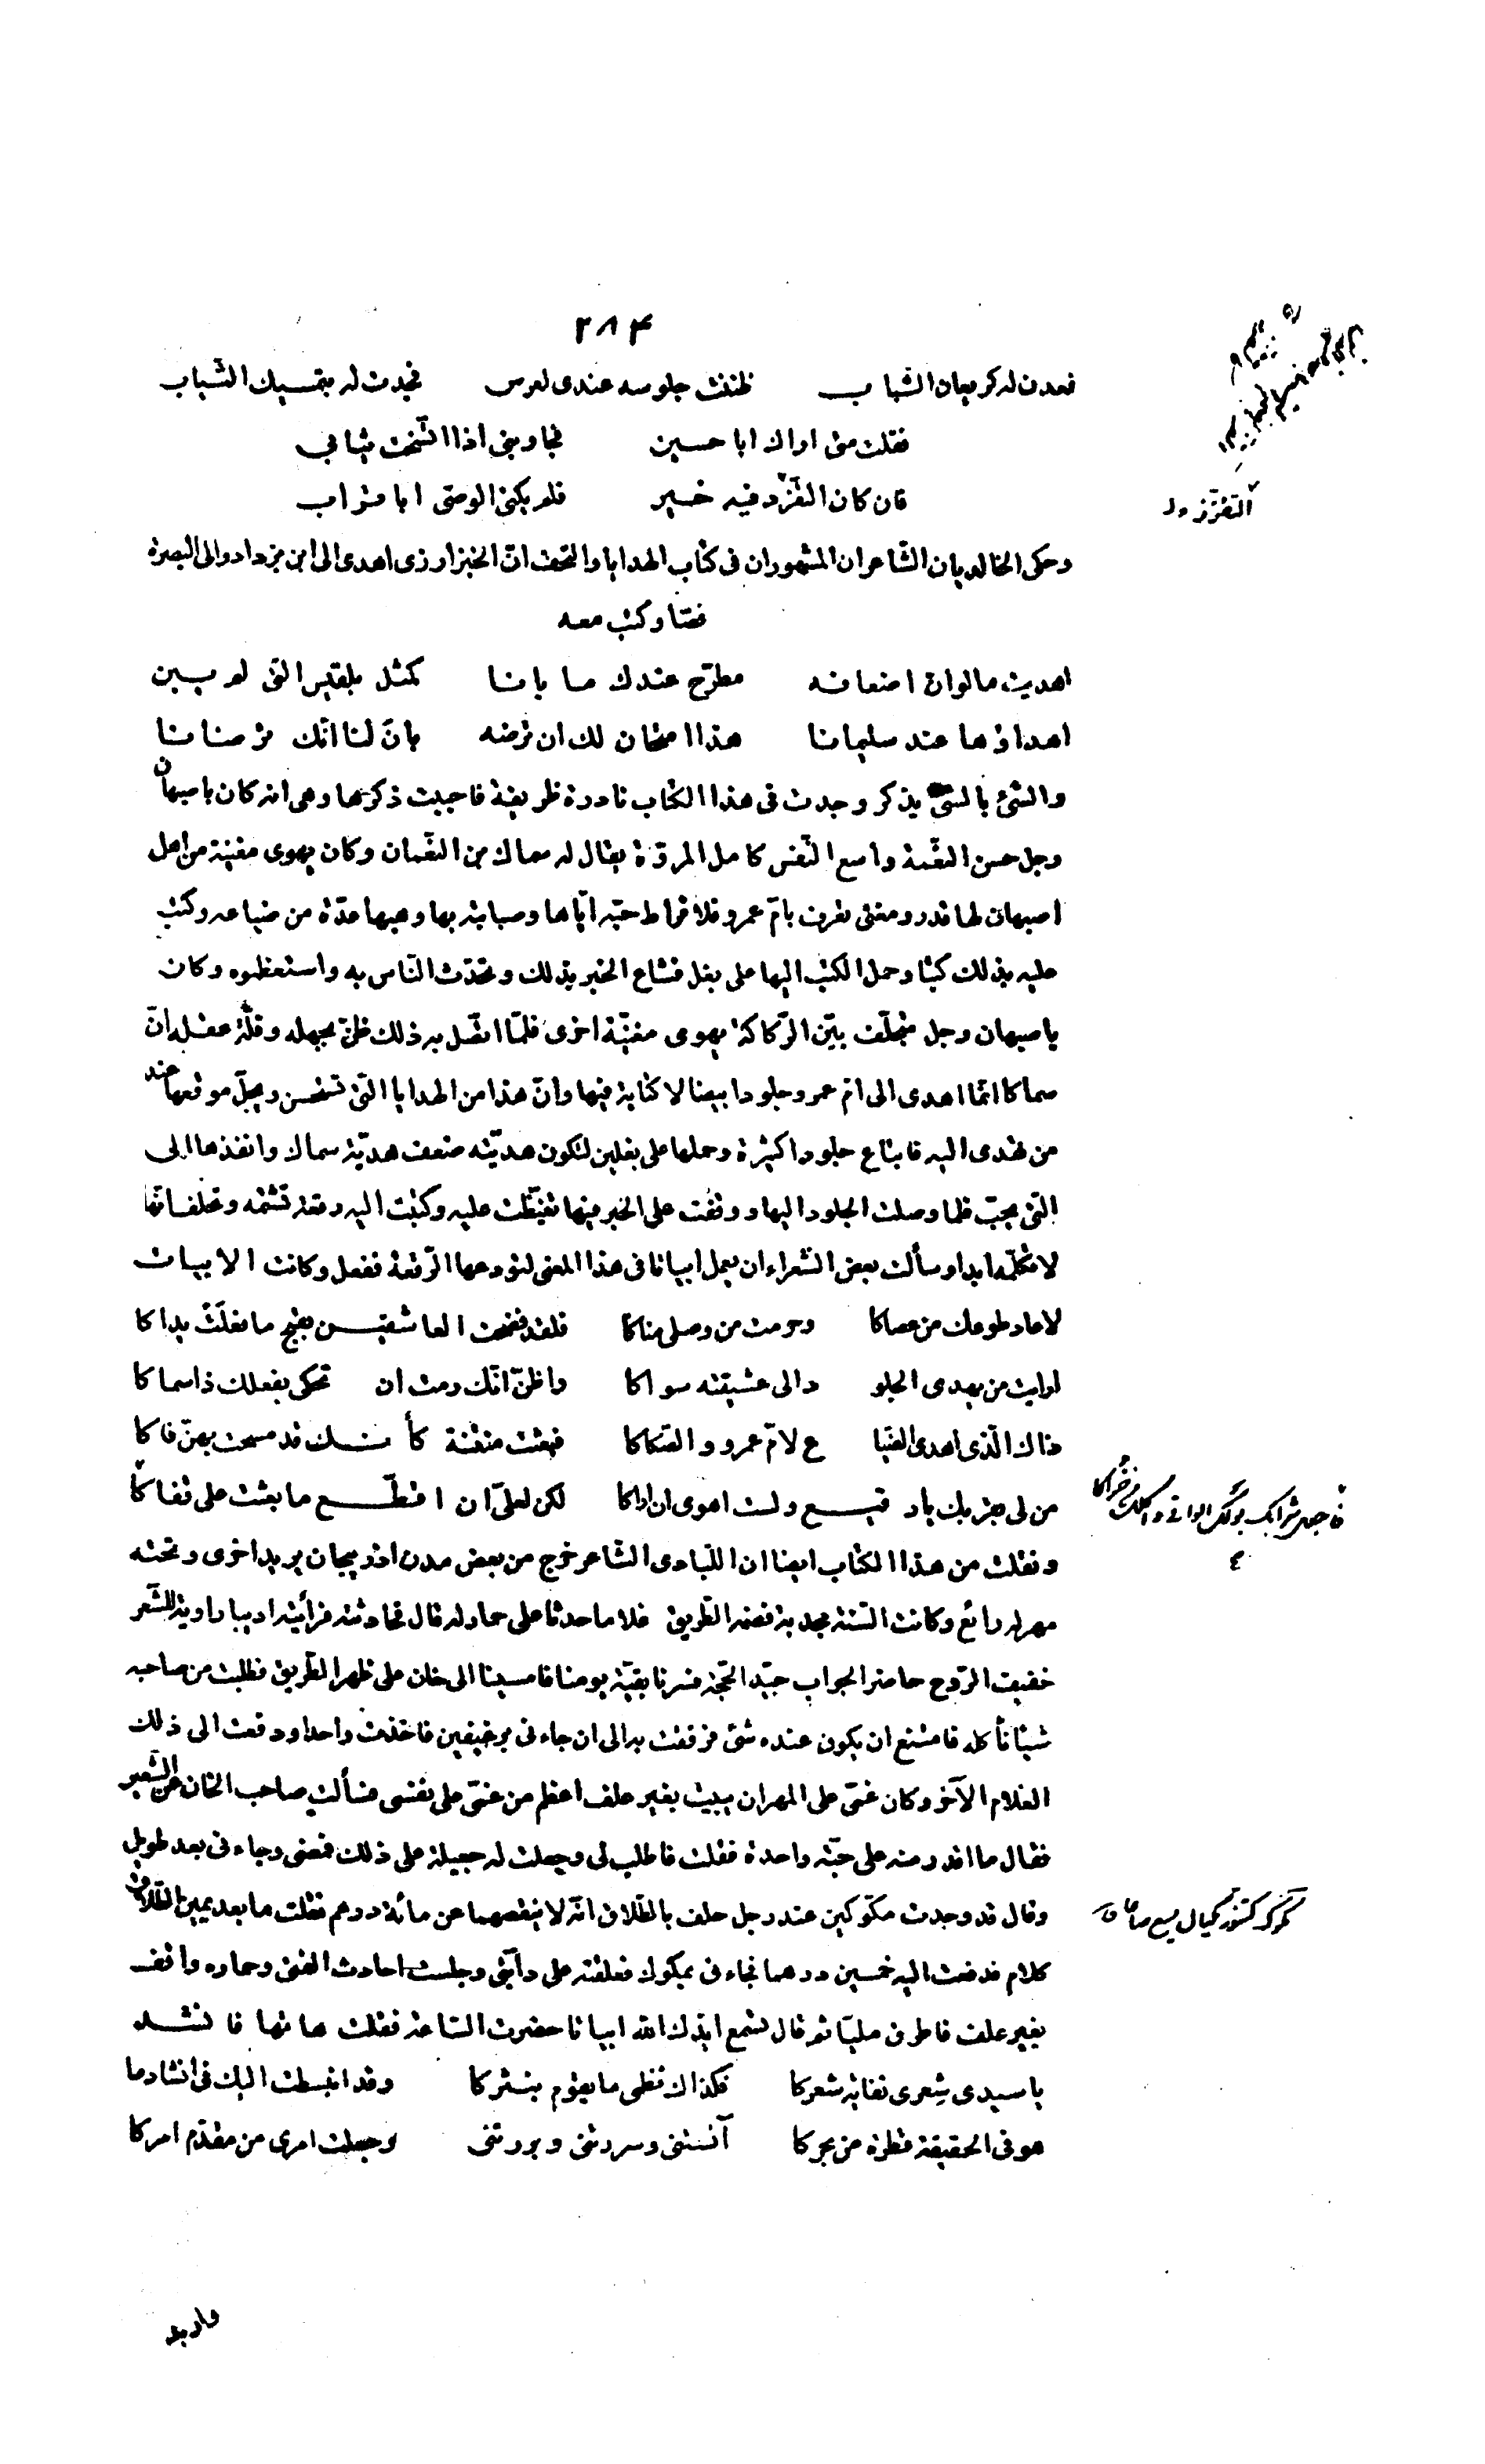 ٢٨۴
فعدن له كريعان الشباب ظننت جلوسه عندى لعرس فجدت له بتمسيك الثياب
فقلت متى اراك ابا حسين فجاوبنى اذا اتسخت ثيابى
فان كان التقزّز فيه خير فلم يكنى الوصى ابا تراب
التقزّز
وحكى الخالديان الشاعران المشهوران فى كتاب الهدايا والتحف انّ الخبزارزى اهدى الى ابن يزداد والى البصرة
فصّا وكتب معه
اهديت ما لوانّ اضعافه مطرّح عندك ما بانا كمثل بلقيس التى لم يبين
اهداؤها عند سليمانا هذا امتحان لك ان ترضه بان لنا انّك ترضانا
والشئ بالشئ يذكر وجدت فى هذا الكتاب نادرة ظريفة فاحببت ذكرها وهى انه كان باصبهان
رجل حسن النعمة واسع النفس كامل المروّة يقال له سماك بن النعمان وكان يهوى مغنية من اهل
اصبهان لها قدر ومعنى تعرف بامّ عمرو فلافراط حبّه ايّاها وصبابته بها وهبها عدّة من ضياعه وكتب
عليه بذلك كتبا وحمل الكتب اليها على بغل فشاع الخبر بذلك وتحدّث الناس به واستعظموه وكان
باصبهان رجل متخلّف بيّن الركاكة يهوى مغنيّة اخرى فلمّا اتصل به ذلك ظنّ بجهله وقلّة عقله انّ
سماكا انّما اهدى الى امّ عمرو جلودا بيضا لا كتابة فيها وانّ هذا من الهدايا التى تستحسن ويجلّ موقعها عند
من تهدى اليه فابتاع جلودا كثيرة وحملها على بغلين لتكون هديّته ضعف هديّة سماك وانفذها الى
التى يحبّ فلما وصلت الجلود اليها ووقفت على الخبر فيها تغيّظت عليه وكتبت اليه رقعة تشتمه وتحلف انّها
لا تكلّمه ابدا وسألت بعض الشعراء ان يعمل ابياتا فى هذا المعنى لتودعها الرّقعة ففعل وكانت الابيات
لا عاد طوعك من عصاكا وحرمت من وصلى مناكا فلقد فضحت العاشقين بقبح ما فعلت يداكا
ارايت من يهدى الجلو د الى عشيقته سواكا واظنّ انّك رمت ان تحكى بفعلك ذا سماكا
ذاك الّذى اهدى الضيا ع لامّ عمرو والصكاكا فبعثت منتنة كأنّك قد مسحت بهنّ فاكا
من لى بقربك يا رقيع ولست اهوى ان اراكا لكن لعلّى ان اقطّع ما بعثت على قفاكا
ونقلت من هذا الكتاب ايضا ان اللبادى الشاعر خرج من بعض مدن اذربيجان يريد اخرى وتحته
مهر له رائع وكانت السّنة مجدبة فضمّه الطريق غلاما حدثا على حمار له قال فحادثته فرأيته اديبا راوية للشعر
خفيف الرّوح حاضر الجواب جيّد الحجّة فسرنا بقيّة يومنا فامسينا الى خان على ظهر الطريق فطلبت من صاحبه
شيئا نأكله فامتنع ان يكون عنده شئ فرفقت به الى ان جاءنى برغيفين فاخذت واحدا ودفعت الى ذلك
الغلام الآخر وكان غمّى على المهر ان يبيت بغير علف اعظم من غمّى على نفسى فسألت صاحب الخان عن الشعير
فقال ما اقدر منه على حبّة واحدة فقلت فاطلب لى وجعلت له جعيلة على ذلك فمضى وجاءنى بعد طويل
وقال قد وجدت مكّوكين عند رجل حلف بالطّلاق انّه لا ينقصهما عن مائة درهم فقلت ما بعد يمين الطّلاق
كلام فدفعت اليه خمسين درهما فجاءنى بمكّوك فعلقته على دابّتى وجلست احادث الفتى وحماره واقف
بغير علف فاطرق مليّا ثم قال تسمع ايّدك الله ابياتا حضرت السّاعة فقلت هاتها فانشد
يا سيدى شِعرى نفاية شعركا فكذاك نظمى ما يقوم بنثركا وقد انبسطت اليك فى انشاد ما
هو فى الحقيقة قطرة من بحركا آنستنى وسررتنى وبررتنى وجعلت امرى من مقدّم امركا